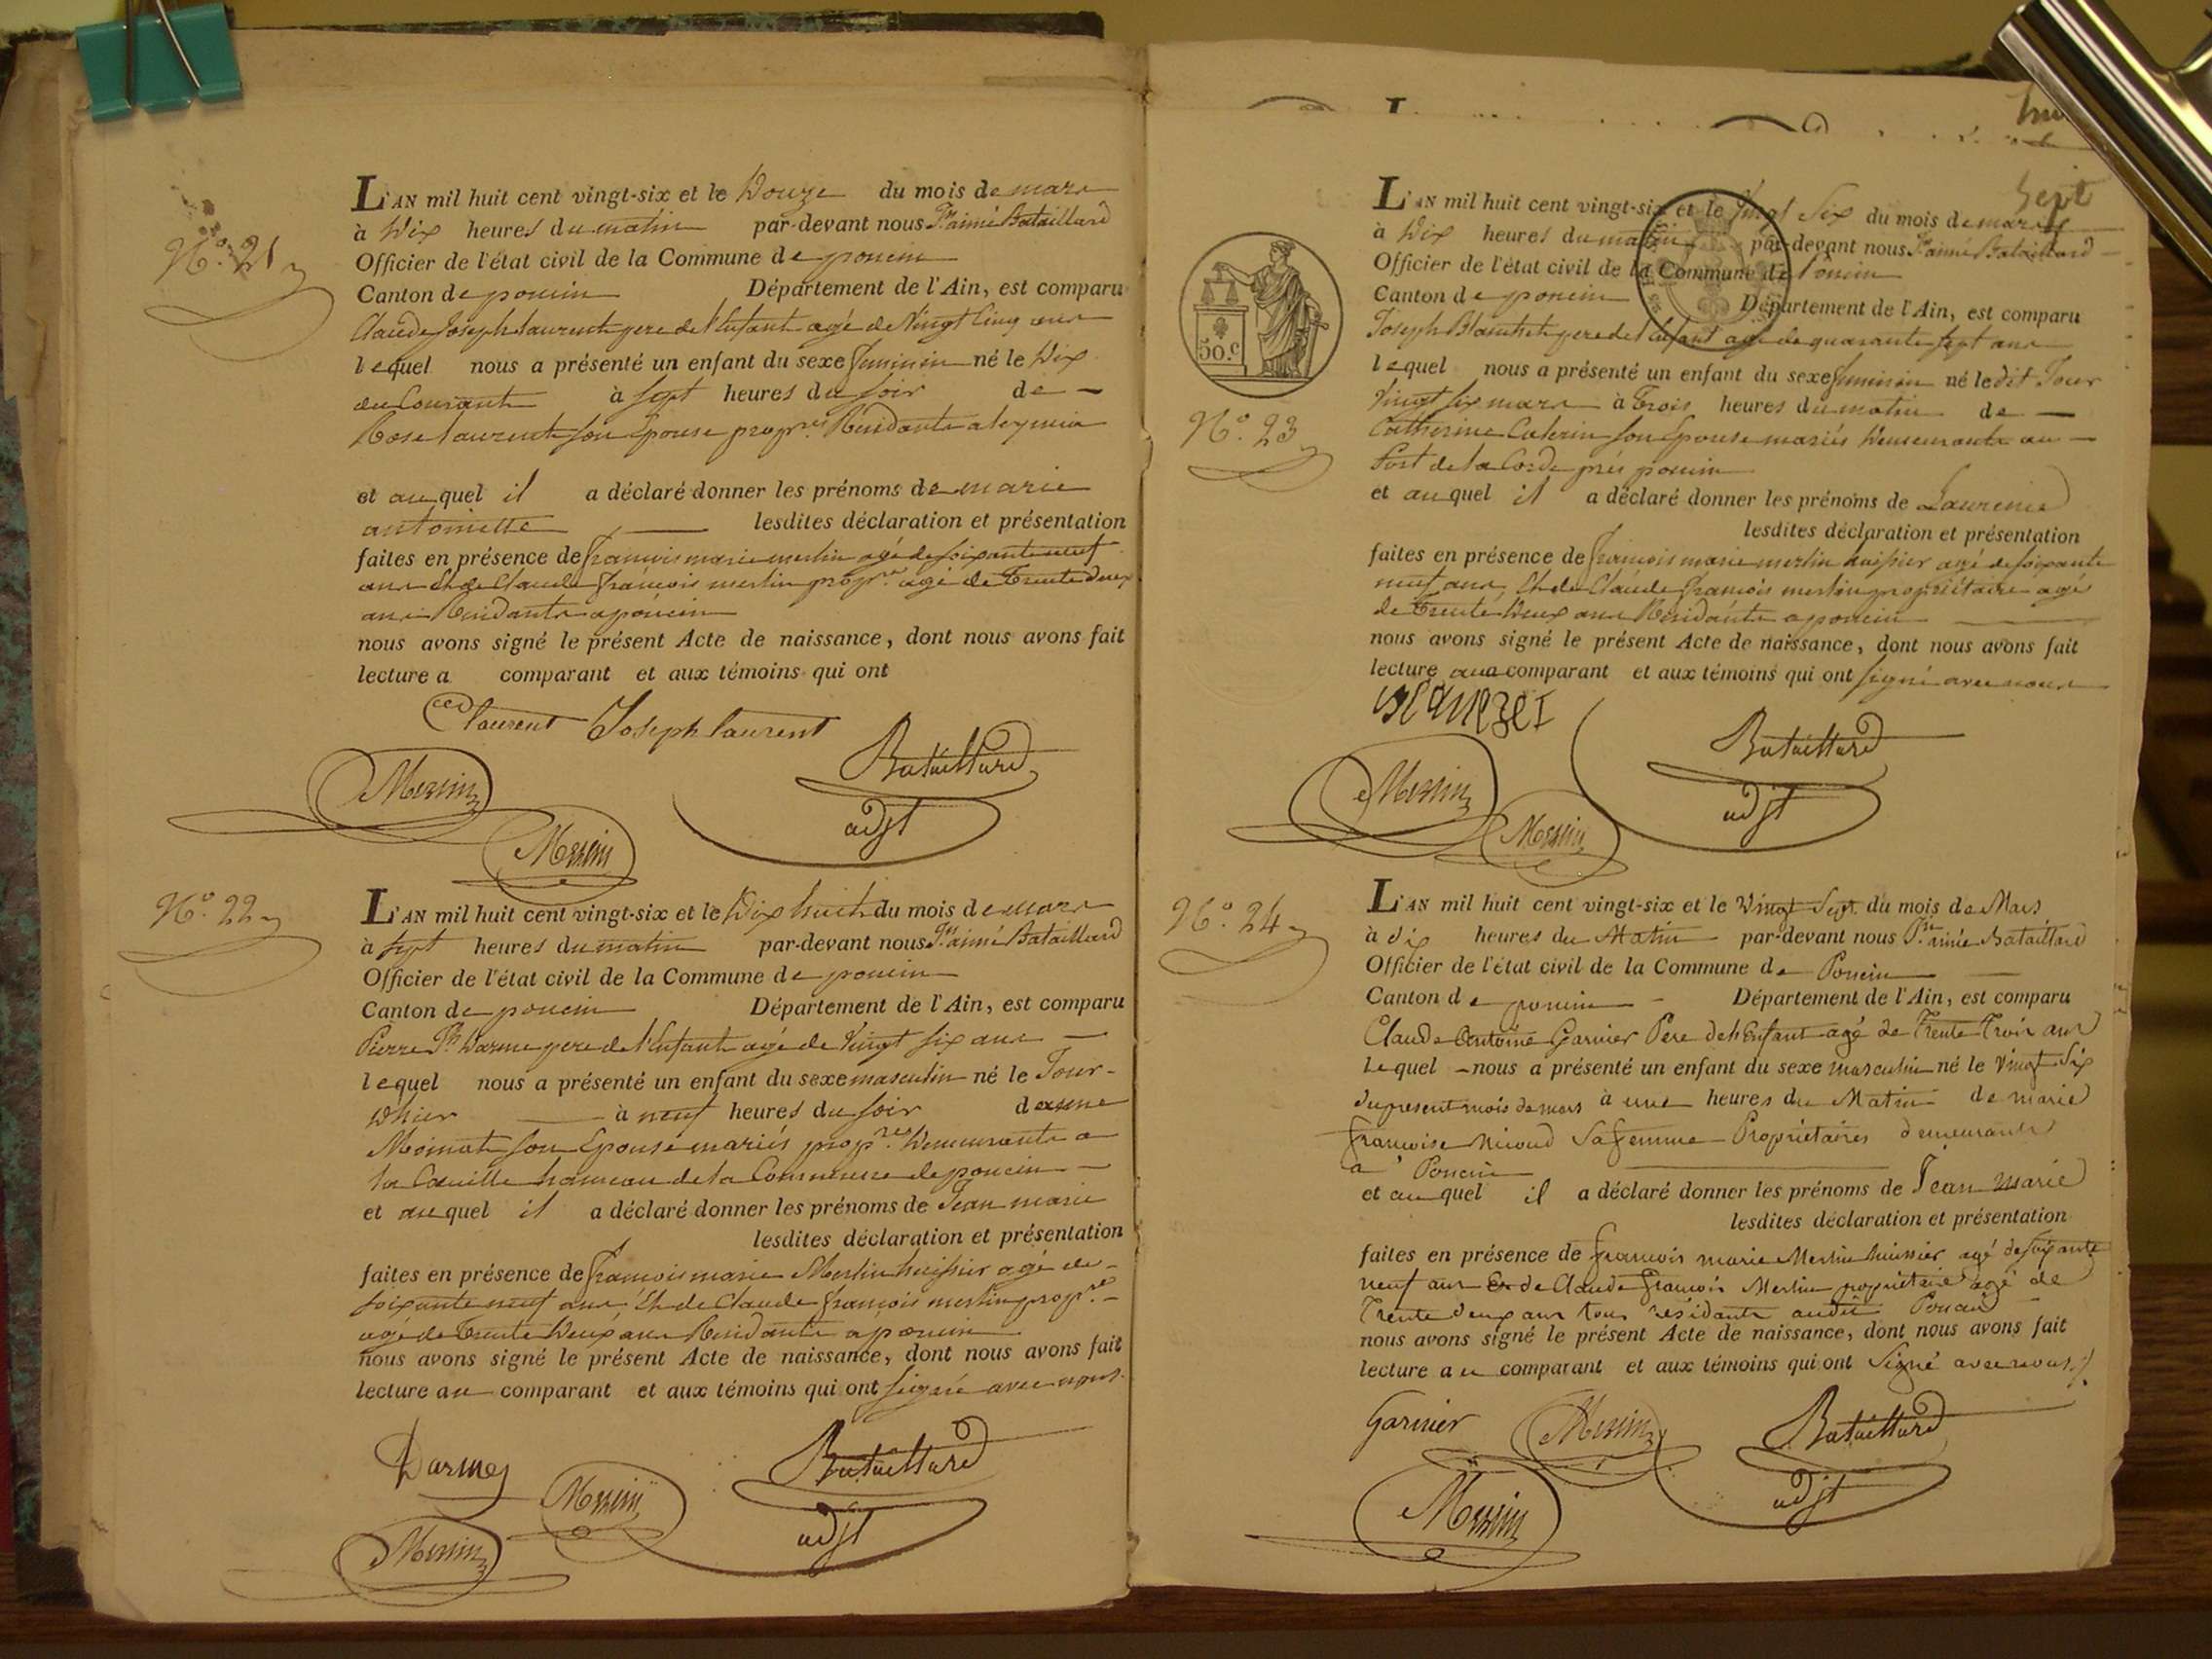 N.º 21
L'AN mil huit cent vingt-six et le Douze du mois de mars
à Dix heures du matin par-devant nous aimé Bataillard
Officier de l'état civil de la Commune de poncin
Canton de poncin Département de l'Ain, est comparu
Claude Joseph Laurent pere de l'Enfant agé de Vingt Cinq ans
lequel nous a présenté un enfant du sexe feminin né le Dix
du Courant à sept heures du soir de —
Rose Laurent son Epouse prop.res Residants a
et auquel il a déclaré donner les prénoms de marie
antoinette lesdites déclaration et présentation
faites en présence de françois marie merlin agé de soixante neuf
ans Et de Claude françois merlin prop.re agé de Trente deux
ans Residants a poncin
nous avons signé le présent Acte de naissance, dont nous avons fait
lecture a comparant et aux témoins qui ont
Laurent Joseph laurent
Bataillard
adjt
Merlin
Merlin
N.º 22
L'AN mil huit cent vingt-six et le Dix huit du mois de mars
à sept heures du matin par-devant nous aimé Bataillard
Officier de l'état civil de la Commune de poncin
Canton de poncin Département de l'Ain, est comparu
Pierre Darme pere de l'Enfant agé de Vingt six ans —
lequel nous a présenté un enfant du sexe masculin né le Jour
D'hier à neuf heures du soir de anne
Moinat son Epouse mariés prop.res Demeurants a
la hameau de la Commune de poncin —
et auquel il a déclaré donner les prénoms de Jean marie
lesdites déclaration et présentation
faites en présence de françois marie Merlin huissier agé de
soixante neuf ans, Et de Claude françois merlin prop.re
agé de Trente Deux ans Residants a poncin
nous avons signé le présent Acte de naissance, dont nous avons fait
lecture au comparant et aux témoins qui ont signé avec nous.
Darmes
Bataillard
Merlin
adjt
Merlin
Sept
50.c
N.º 23
L'AN mil huit cent vingt-six et le Vingt Six du mois de mars
à Dix heures du matin par-devant nous aimé Bataillard
Officier de l'état civil de la Commune de Poncin
Canton de poncin Département de l'Ain, est comparu
Joseph Blanchet pere de l'Enfant agé de quarante sept ans
lequel nous a présenté un enfant du sexe feminin né le dit Jour
Vingt six mars à Trois heures du matin de —
Catherine son Epouse mariés Demeurants au —
Port de la Corde près poncin
et auquel il a déclaré donner les prénoms de Laurence
lesdites déclaration et présentation
faites en présence de françois marie merlin huissier agé de soixante
neuf ans, Et de Claude françois merlin propriétaire agé
de Trente Deux ans Residants a poncin
nous avons signé le présent Acte de naissance, dont nous avons fait
lecture aux comparant et aux témoins qui ont signé avec nous
Bataillard
adjt
Merlin
Merlin
N.º 24
L'AN mil huit cent vingt-six et le Vingt Sept du mois de Mars
à dix heures du Matin par-devant nous aimée Bataillard
Officier de l'état civil de la Commune de Poncin
Canton de poncin Département de l'Ain, est comparu
Claude Antoine Garnier Pere de l'Enfant agé de Trente Trois ans
Lequel nous a présenté un enfant du sexe masculin né le Vingt Six
du present mois de mars à une heures du Matin de marie
françoise Nicoud Sa femme Propriétaires demeurants
a Poncin
et auquel il a déclaré donner les prénoms de Jean Marie
lesdites déclaration et présentation
faites en présence de françois marie Merlin huissier agé de soixante
neuf ans Et de Claude françois Merlin propriétaire agé de
Trente deux ans tous résidants audit Poncin
nous avons signé le présent Acte de naissance, dont nous avons fait
lecture au comparant et aux témoins qui ont Signé avec nous
Garnier
Merlin
Bataillard
adjt
Merlin